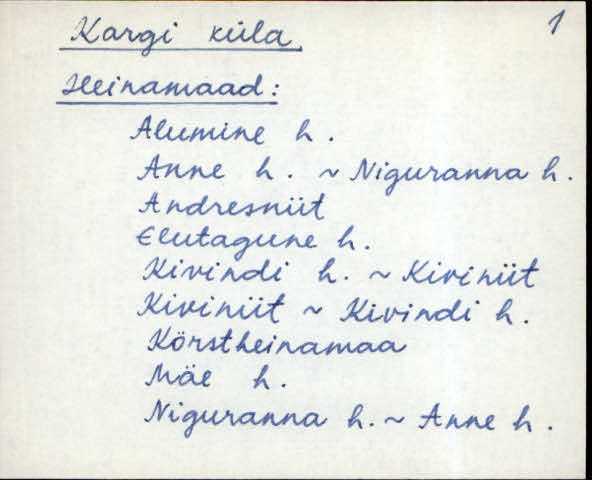 1
Kargi küla
Heinamaad:
Alumine h.
Anne h. ~ Niguranna h.
Andresniit
Elutagune h.
Kivindi h. ~ Kiviniit
Kiviniit ~ Kivindi h.
Körstheinamaa
Mäe h.
Niguranna h. ~ Anne h.